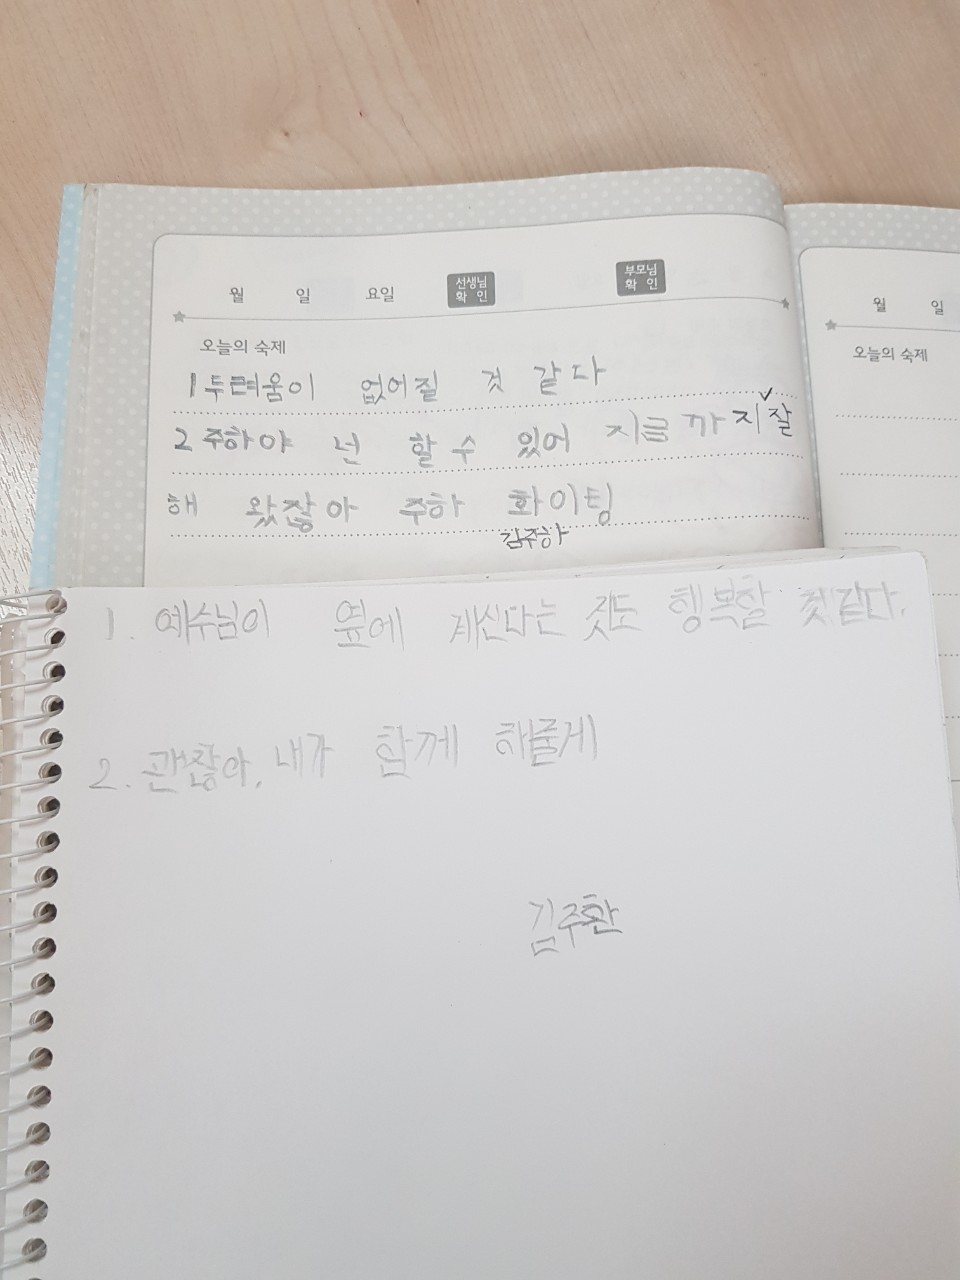 월 일 요일 선생님 확인 부모님 확인
오늘의 숙제
1 두려움이 없어질 것 같다
2 주하야 넌 할 수 있어 지금 까지 잘
해 왔잖아 주하 화이팅
김주하
월 일
오늘의 숙제
1. 예수님이 옆에 계신다는 것도 행복할 것 같다.
2. 괜찮아, 내가 함께 해줄게
김주환